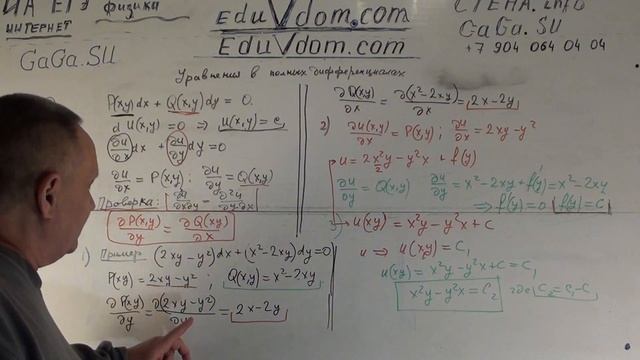 ИА ЕГЭ физика
ИНТЕРНЕТ
GaGa.SU
EduVdom.com
EduVdom.com
СТЕНА.info
GaGa.SU
+7 904 064 04 04
Уравнения в полных дифференциалах
P(xy)dx + Q(x,y)dy = 0.
d U(x,y) = 0 => U(x,y) = c,
∂u/∂x dx + ∂u/∂y dy = 0
∂u/∂x = P(x,y); ∂u/∂y = Q(x,y)
Проверка: ∂²u/∂x∂y = ∂²u/∂y∂x
∂P(x,y)/∂y = ∂Q(xy)/∂x
1) Пример (2xy-y²)dx + (x²-2xy)dy = 0
P(xy) = 2xy-y²; Q(x,y) = x²-2xy
∂P(xy)/∂y = ∂(2xy-y²)/∂y = 2x-2y
∂Q(xy)/∂x = ∂(x²-2xy)/∂x = 2x-2y
2) ∂u(x,y)/∂x = P(x,y); ∂u/∂x = 2xy-y²
u = 2x²/2 y - y²x + f(y)
∂u/∂y = Q(x,y) ∂u/∂y = x²-2xy+f'(y) = x²-2xy
=> f'(y) = 0 f(y) = C
3) u(xy) = x²y - y²x + c
u => u(x,y) = C₁
u(xy) = x²y - y²x + C = C₁
x²y - y²x = C₂ где C₂ = C₁ - C